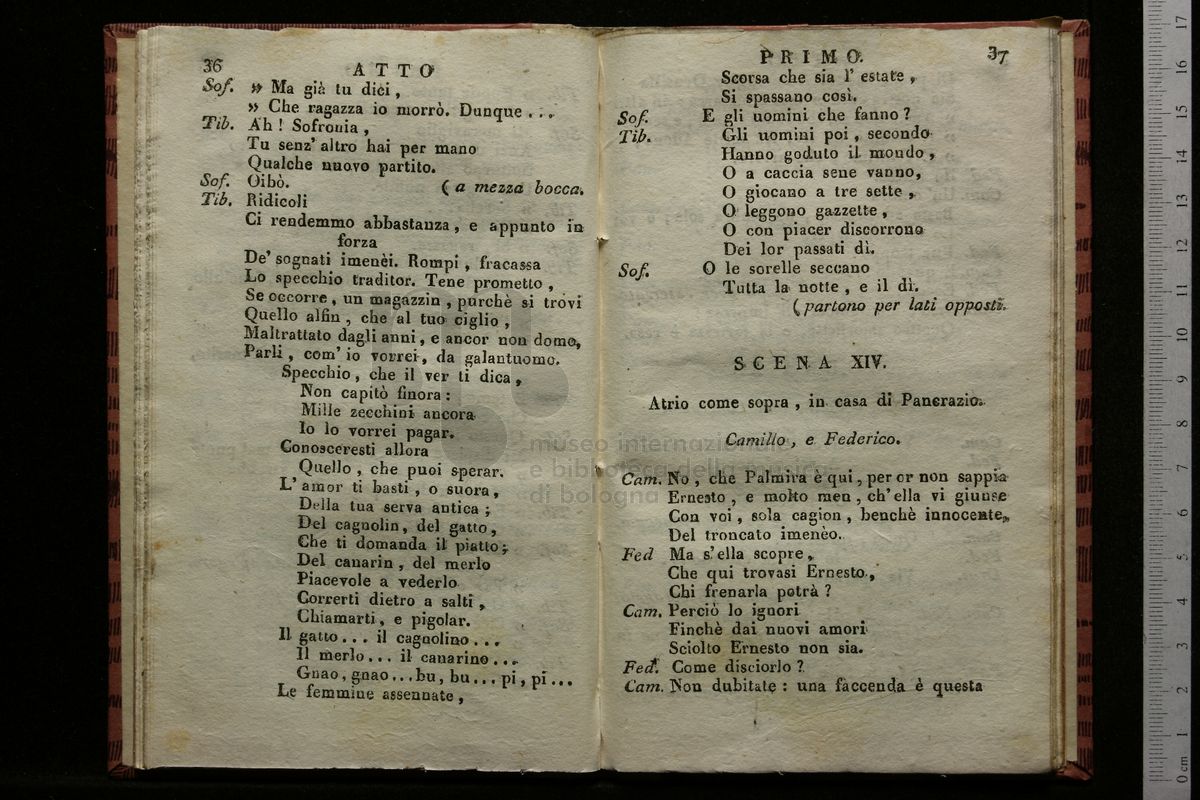 36
ATTO
Sof. » Ma già tu dici,
» Che ragazza io morrò. Dunque...
Tib. Ah! Sofronia,
Tu senz' altro hai per mano
Qualche nuovo partito.
Sof. Oibò. (a mezza bocca.
Tib. Ridicoli
Ci rendemmo abbastanza, e appunto in
forza
De' sognati imenèi. Rompi, fracassa
Lo specchio traditor. Tene prometto,
Se occorre, un magazzin, purchè si trovi
Quello alfin, che al tuo ciglio,
Maltrattato dagli anni, e ancor non domo,
Parli, com' io vorrei, da galantuomo.
Specchio, che il ver ti dica,
Non capitò finora:
Mille zecchini ancora
Io lo vorrei pagar.
Conosceresti allora
Quello, che puoi sperar.
L' amor ti basti, o suora,
Della tua serva antica;
Del cagnolin, del gatto,
Che ti domanda il piatto;
Del canarin, del merlo
Piacevole a vederlo
Correrti dietro a salti,
Chiamarti, e pigolar.
Il gatto... il cagnolino...
Il merlo... il canarino...
Gnao, gnao...bu, bu...pi, pi...
Le femmine assennate,
PRIMO.
37
Scorsa che sia l' estate,
Si spassano così.
Sof. E gli uomini che fanno?
Tib. Gli uomini poi, secondo
Hanno goduto il mondo,
O a caccia sene vanno,
O giocano a tre sette,
O leggono gazzette,
O con piacer discorrono
Dei lor passati dì.
Sof. O le sorelle seccano
Tutta la notte, e il dì.
(partono per lati opposti.
SCENA XIV.
Atrio come sopra, in casa di Pancrazio.
Camillo, e Federico.
Cam. No, che Palmira è qui, per or non sappia
Ernesto, e molto men, ch' ella vi giunse
Con voi, sola cagion, benchè innocente,
Del troncato imenèo.
Fed Ma s' ella scopre,
Che qui trovasi Ernesto,
Chi frenarla potrà?
Cam. Perciò lo ignori
Finchè dai nuovi amori
Sciolto Ernesto non sia.
Fed. Come disciorlo?
Cam. Non dubitate: una faccenda è questa
museo internazionale
e biblioteca della musica
di bologna
17
16
15
14
13
12
11
10
9
8
7
6
5
4
3
2
1
0 cm